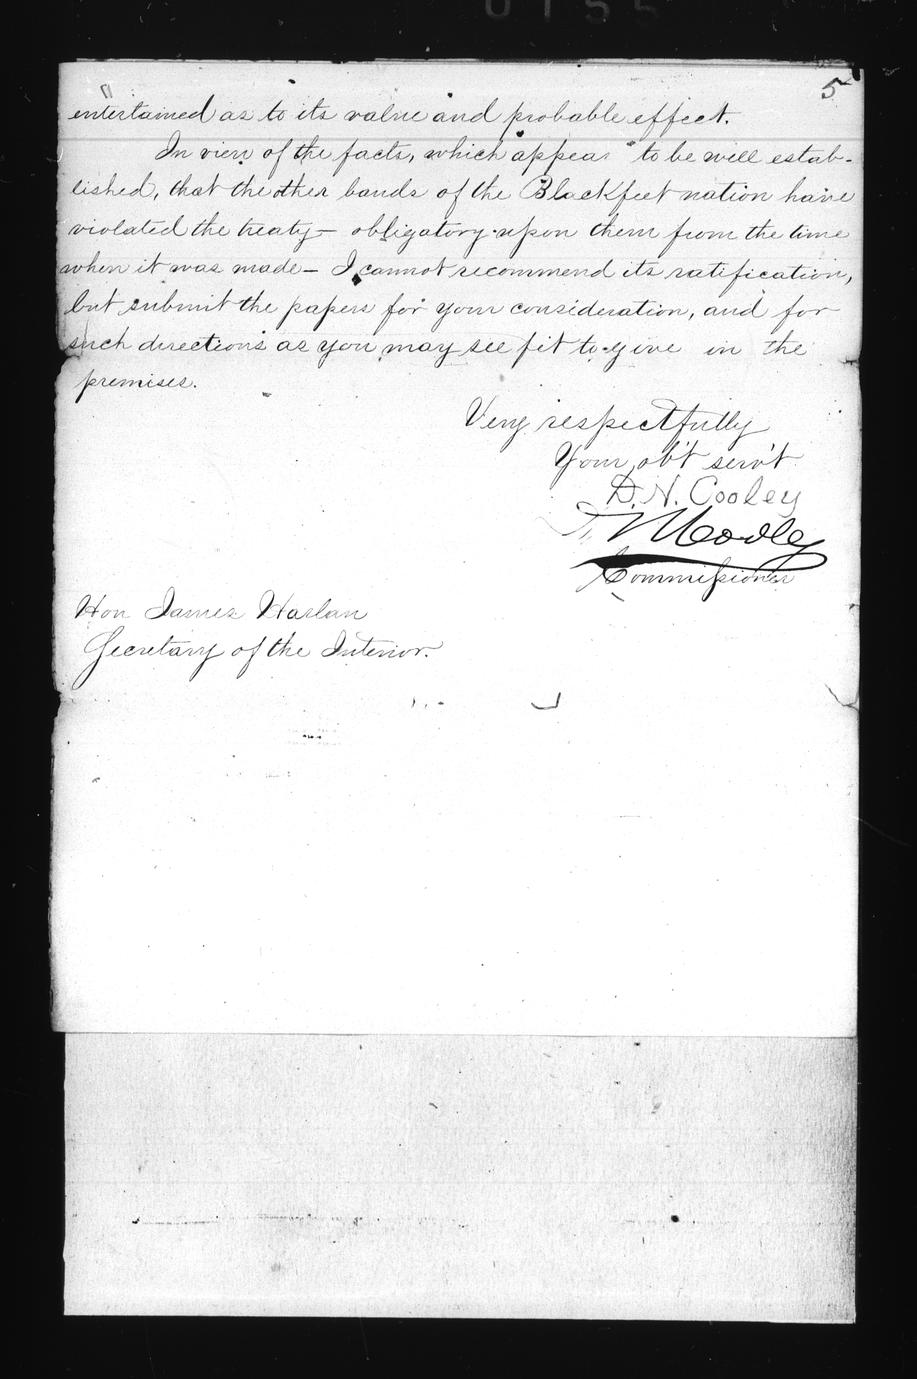 0155
5
entertained as to its value and probable effect.
In view of the facts, which appear to be well estab-
lished, that the other bands of the Blackfeet nation have
violated the treaty — obligatory upon them from the time
when it was made — I cannot recommend its ratification,
but submit the papers for your consideration, and for
such directions as you may see fit to give in the
premises.
Very respectfully
Your obt servt
D. N. Cooley
Commissioner
Hon James Harlan
Secretary of the Interior.